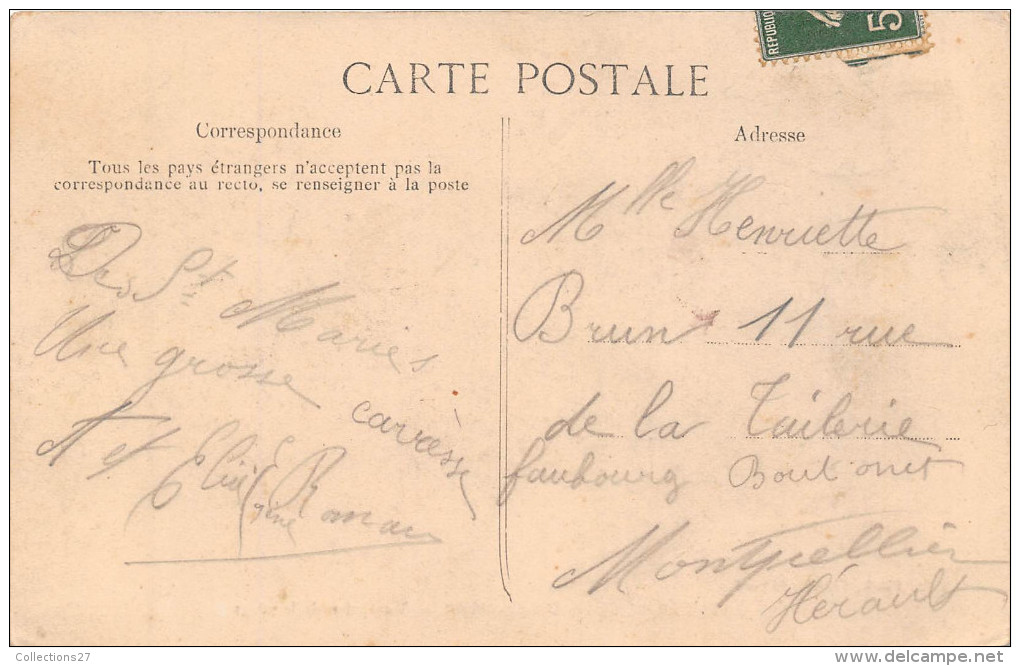 REPUBLIQ
5
CARTE POSTALE
Correspondance
Tous les pays étrangers n'acceptent pas la
correspondance au recto, se renseigner à la poste
Des St Maries
Une grosse caresse
A et
Roman
Adresse
Mlle Henriette
Brun 11 rue
de la Tuilerie
faubourg Boutonet
Montpellier
Hérault
Collections27
www.delcampe.net